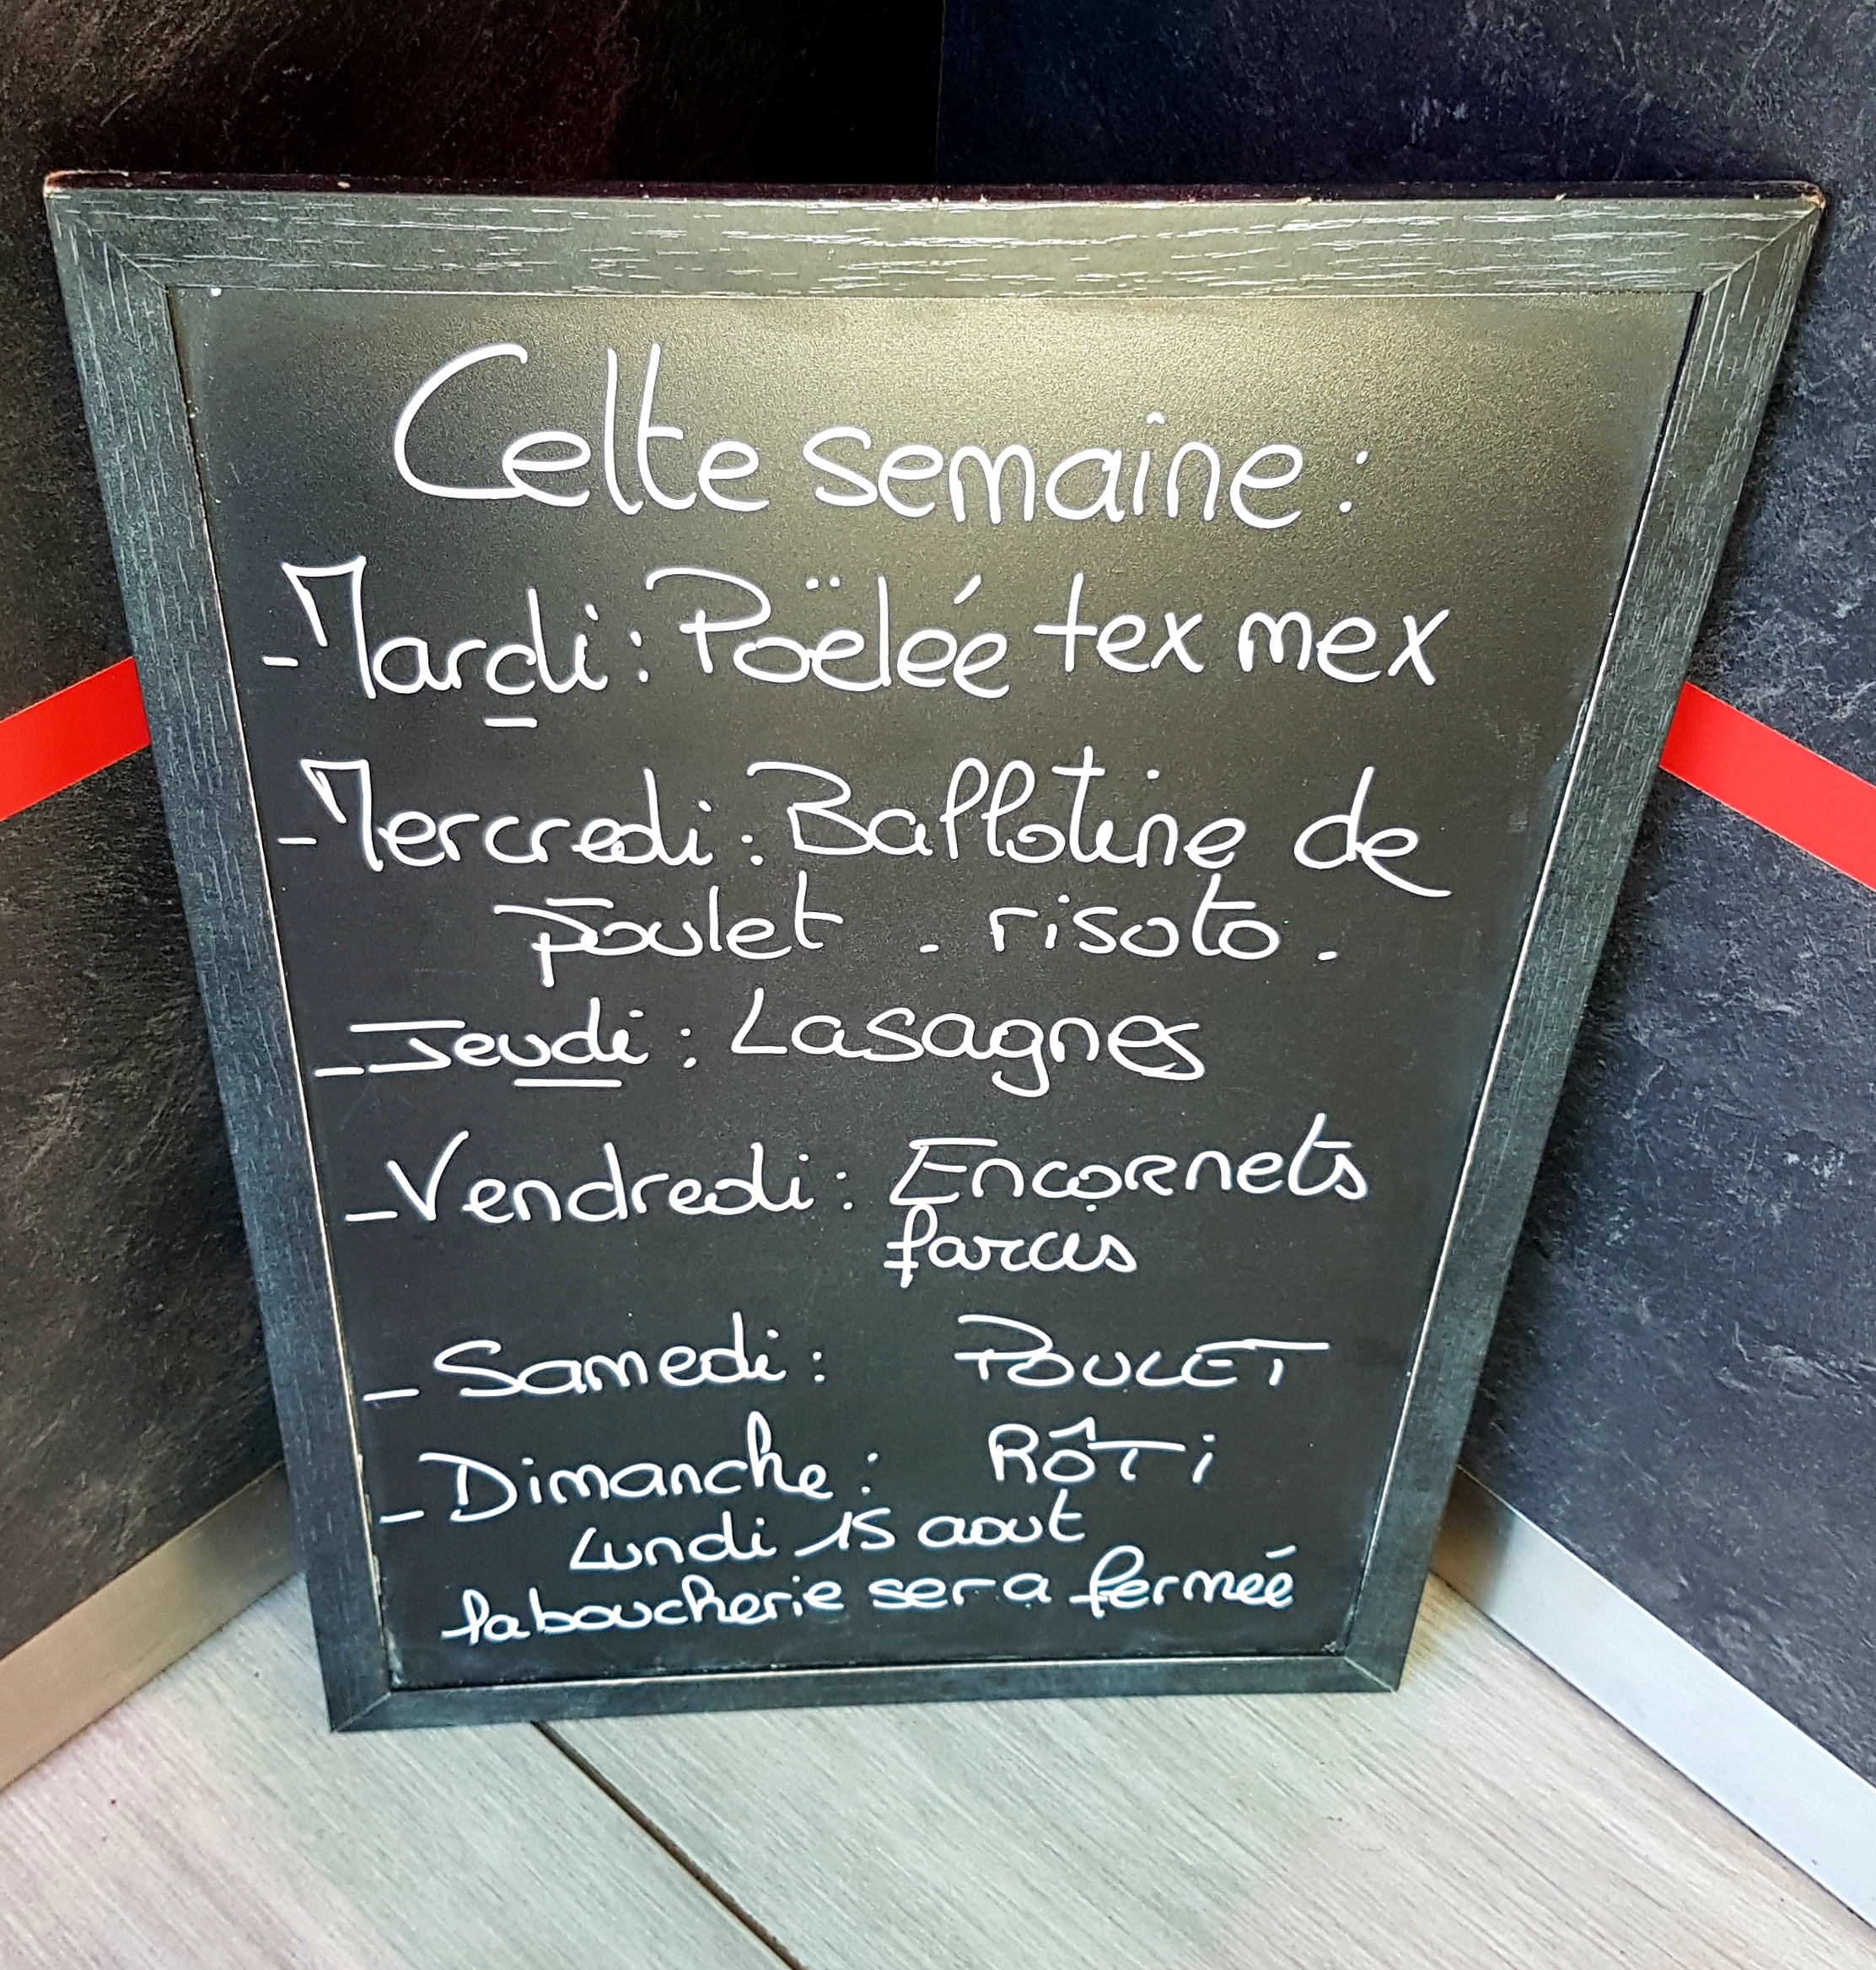 Cette semaine :
- Mardi : Poëlée tex mex
- Mercredi : Ballotine de
poulet . risoto .
- Jeudi : Lasagnes
- Vendredi : Encornets
farcis
- Samedi : POULET
- Dimanche : RÔTi
Lundi 15 aout
la boucherie sera fermée